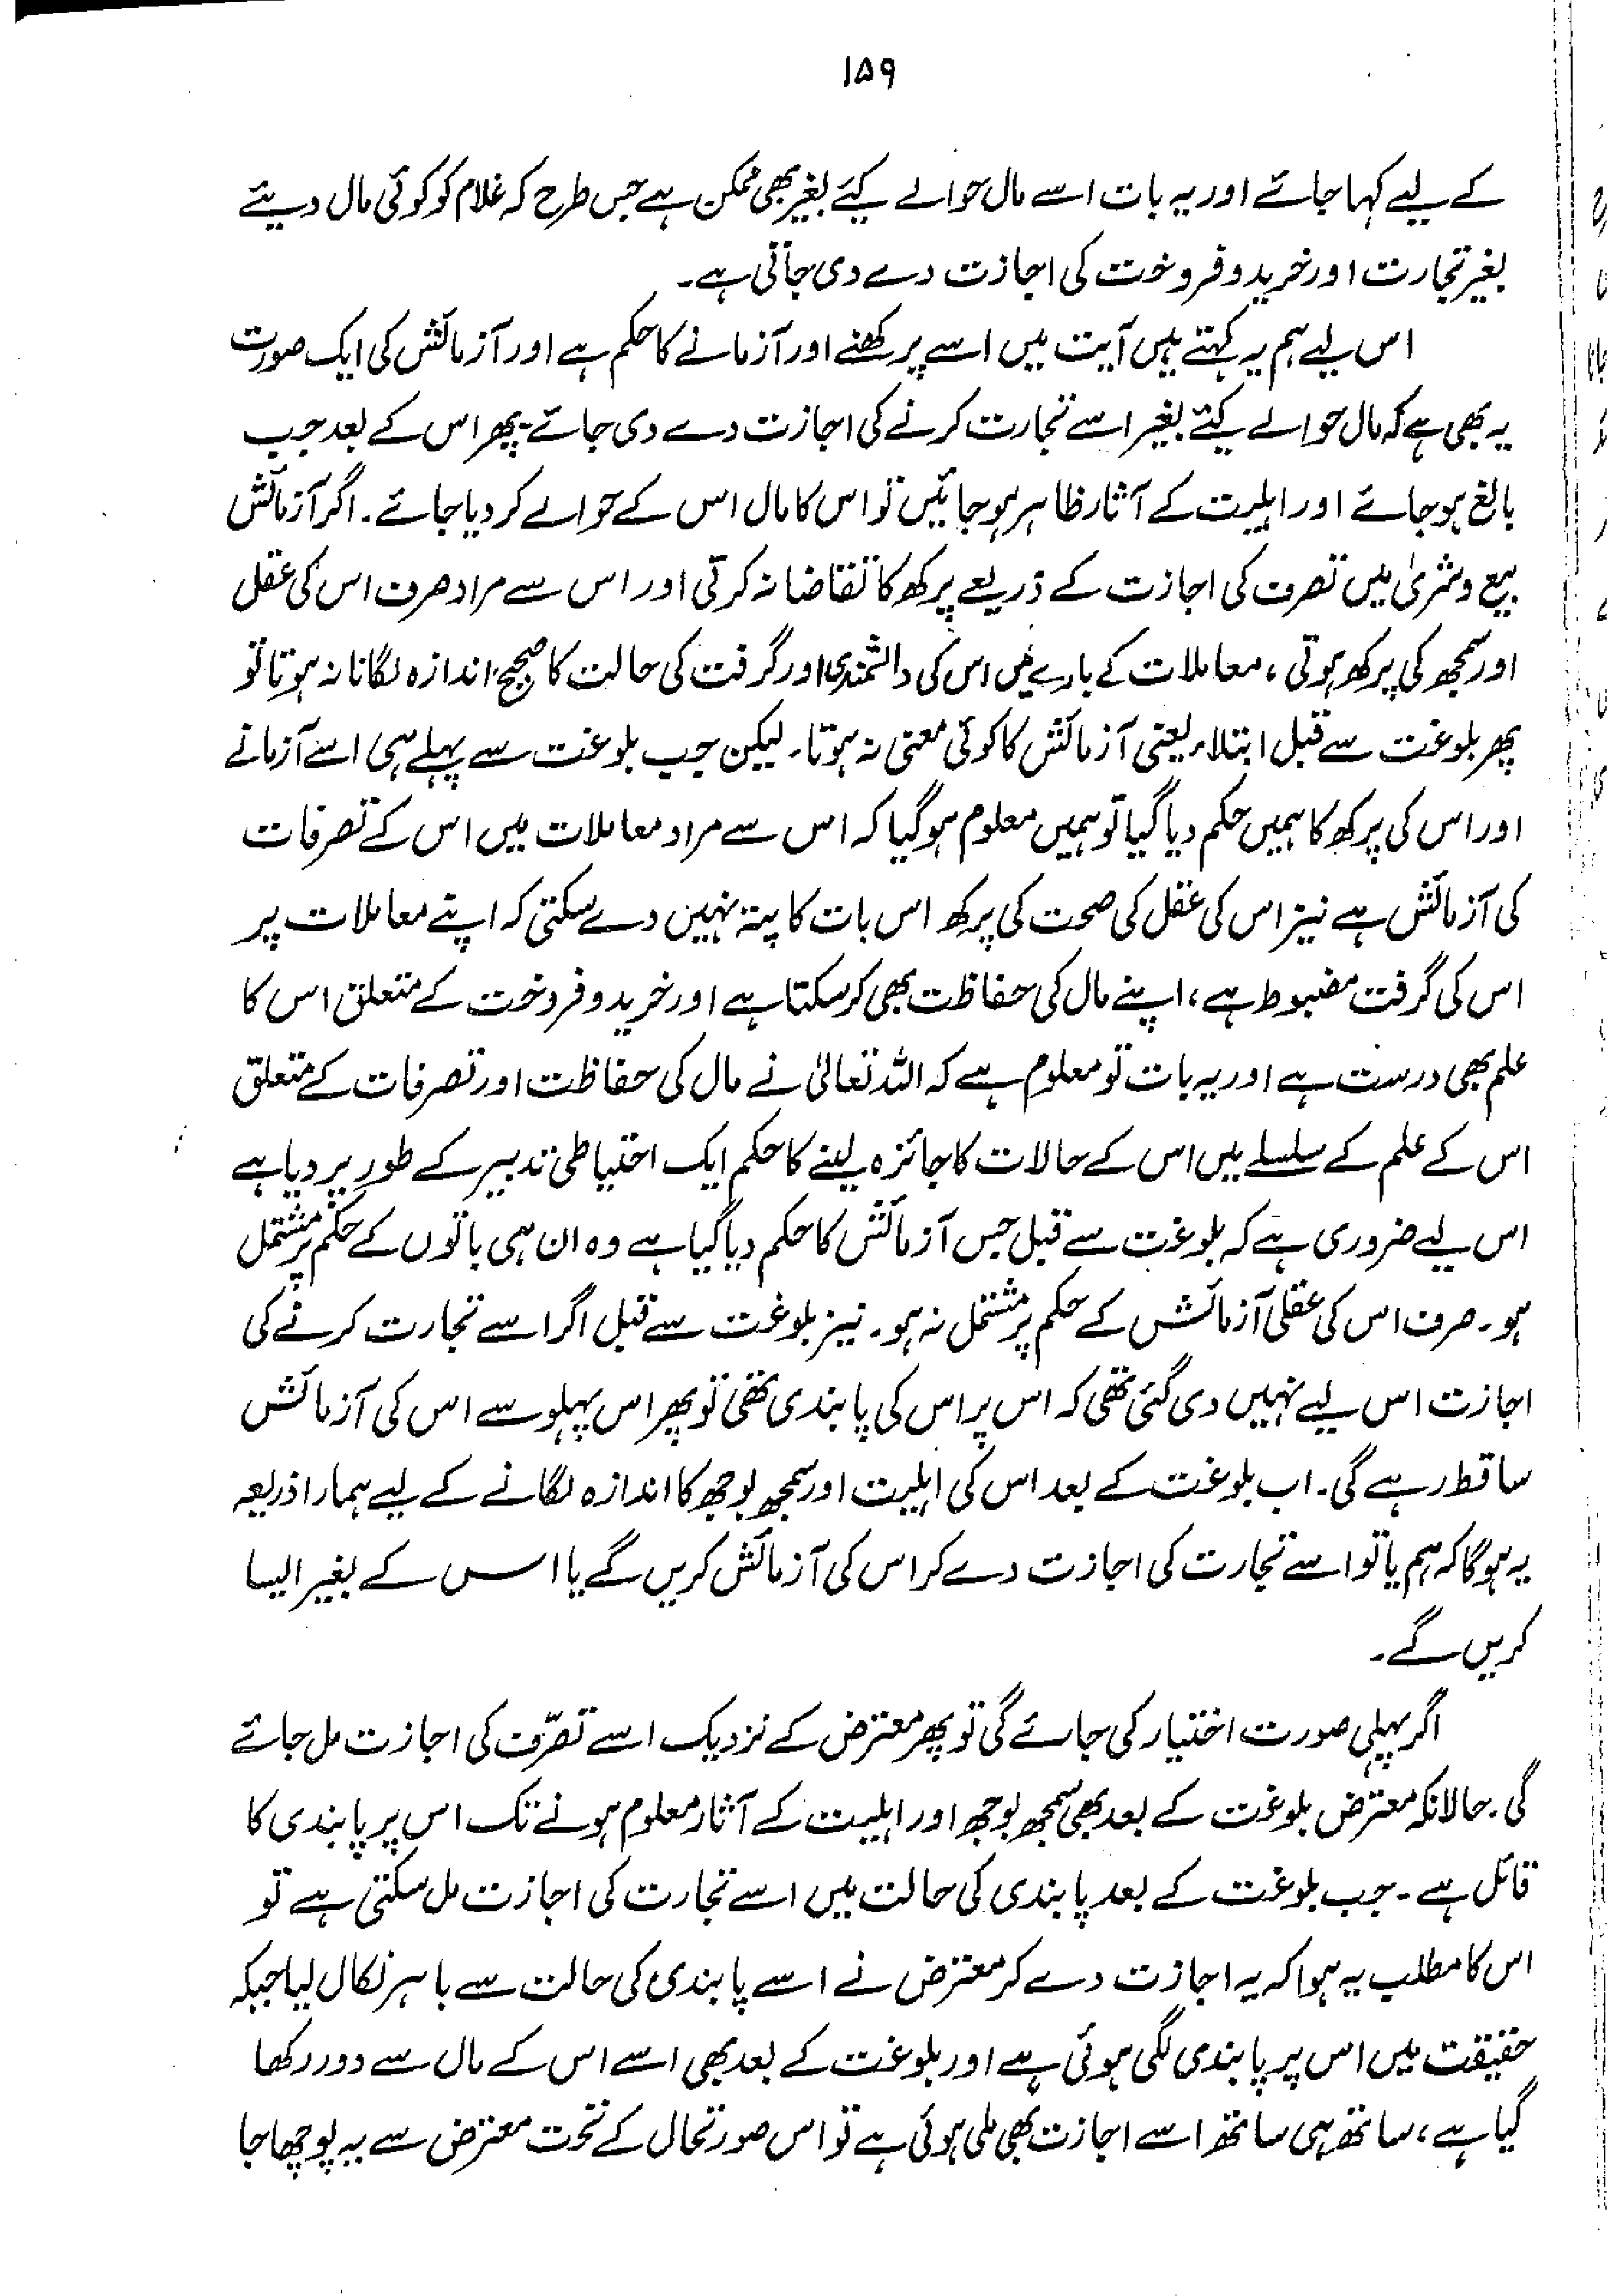 ۱۵۹
کے لیے کہا جائے اور یہ بات اسے مال حوالے کیئے بغیر بھی ممکن ہے جس طرح کہ غلام کو کوئی مال دیئے
بغیر تجارت اور خرید و فروخت کی اجازت دے دی جاتی ہے۔
اس لیے ہم یہ کہتے ہیں آیت میں اسے پرکھنے اور آزمانے کا حکم ہے اور آزمائش کی ایک صورت
یہ بھی ہے کہ مال حوالے کیئے بغیر اسے تجارت کرنے کی اجازت دے دی جائے۔ پھر اس کے بعد جب
بالغ ہو جائے اور اہلیت کے آثار ظاہر ہو جائیں تو اس کا مال اس کے حوالے کر دیا جائے۔ اگر آزمائش
بیع و شریٰ میں تصرف کی اجازت کے ذریعے پرکھ کا تقاضا نہ کرتی اور اس سے مراد صرف اس کی عقل
اور سمجھ کی پرکھ ہوتی، معاملات کے بارے میں اس کی دانشمندی اور گرفت کی حالت کا صحیح اندازہ لگانا نہ ہوتا تو
پھر بلوغت سے قبل ابتلاء یعنی آزمائش کا کوئی معنی نہ ہوتا۔ لیکن جب بلوغت سے پہلے ہی اسے آزمانے
اور اس کی پرکھ کا ہمیں حکم دیا گیا تو ہمیں معلوم ہو گیا کہ اس سے مراد معاملات میں اس کے تصرفات
کی آزمائش ہے نیز اس کی عقل کی صحت کی پرکھ اس بات کا پتہ نہیں دے سکتی کہ اپنے معاملات پر
اس کی گرفت مضبوط ہے، اپنے مال کی حفاظت بھی کر سکتا ہے اور خرید و فروخت کے متعلق اس کا
علم بھی درست ہے اور یہ بات تو معلوم ہے کہ اللہ تعالیٰ نے مال کی حفاظت اور تصرفات کے متعلق
اس کے علم کے سلسلے میں اس کے حالات کا جائزہ لینے کا حکم ایک احتیاطی تدبیر کے طور پر دیا ہے
اس لیے ضروری ہے کہ بلوغت سے قبل جس آزمائش کا حکم دیا گیا ہے وہ ان ہی باتوں کے حکم پر مشتمل
ہو۔ صرف اس کی عقلی آزمائش کے حکم پر مشتمل نہ ہو۔ نیز بلوغت سے قبل اگر اسے تجارت کرنے کی
اجازت اس لیے نہیں دی گئی تھی کہ اس پر اس کی پابندی تھی تو پھر اس پہلو سے اس کی آزمائش
ساقط رہے گی۔ اب بلوغت کے بعد اس کی اہلیت اور سمجھ بوجھ کا اندازہ لگانے کے لیے ہمارا ذریعہ
یہ ہوگا کہ ہم یا تو اسے تجارت کی اجازت دے کر اس کی آزمائش کریں گے یا اس کے بغیر ایسا
کریں گے۔
اگر پہلی صورت اختیار کی جائے گی تو پھر معترض کے نزدیک اسے تصرّف کی اجازت مل جائے
گی۔ حالانکہ معترض بلوغت کے بعد بھی سمجھ بوجھ اور اہلیت کے آثار معلوم ہونے تک اس پر پابندی کا
قائل ہے۔ جب بلوغت کے بعد پابندی کی حالت میں اسے تجارت کی اجازت مل سکتی ہے تو
اس کا مطلب یہ ہوا کہ یہ اجازت دے کر معترض نے اسے پابندی کی حالت سے باہر نکال لیا جبکہ
حقیقت میں اس پر پابندی لگی ہوئی ہے اور بلوغت کے بعد بھی اسے اس کے مال سے دور رکھا
گیا ہے، ساتھ ہی ساتھ اسے اجازت بھی ملی ہوئی ہے تو اس صورتحال کے تحت معترض سے یہ پوچھا جا